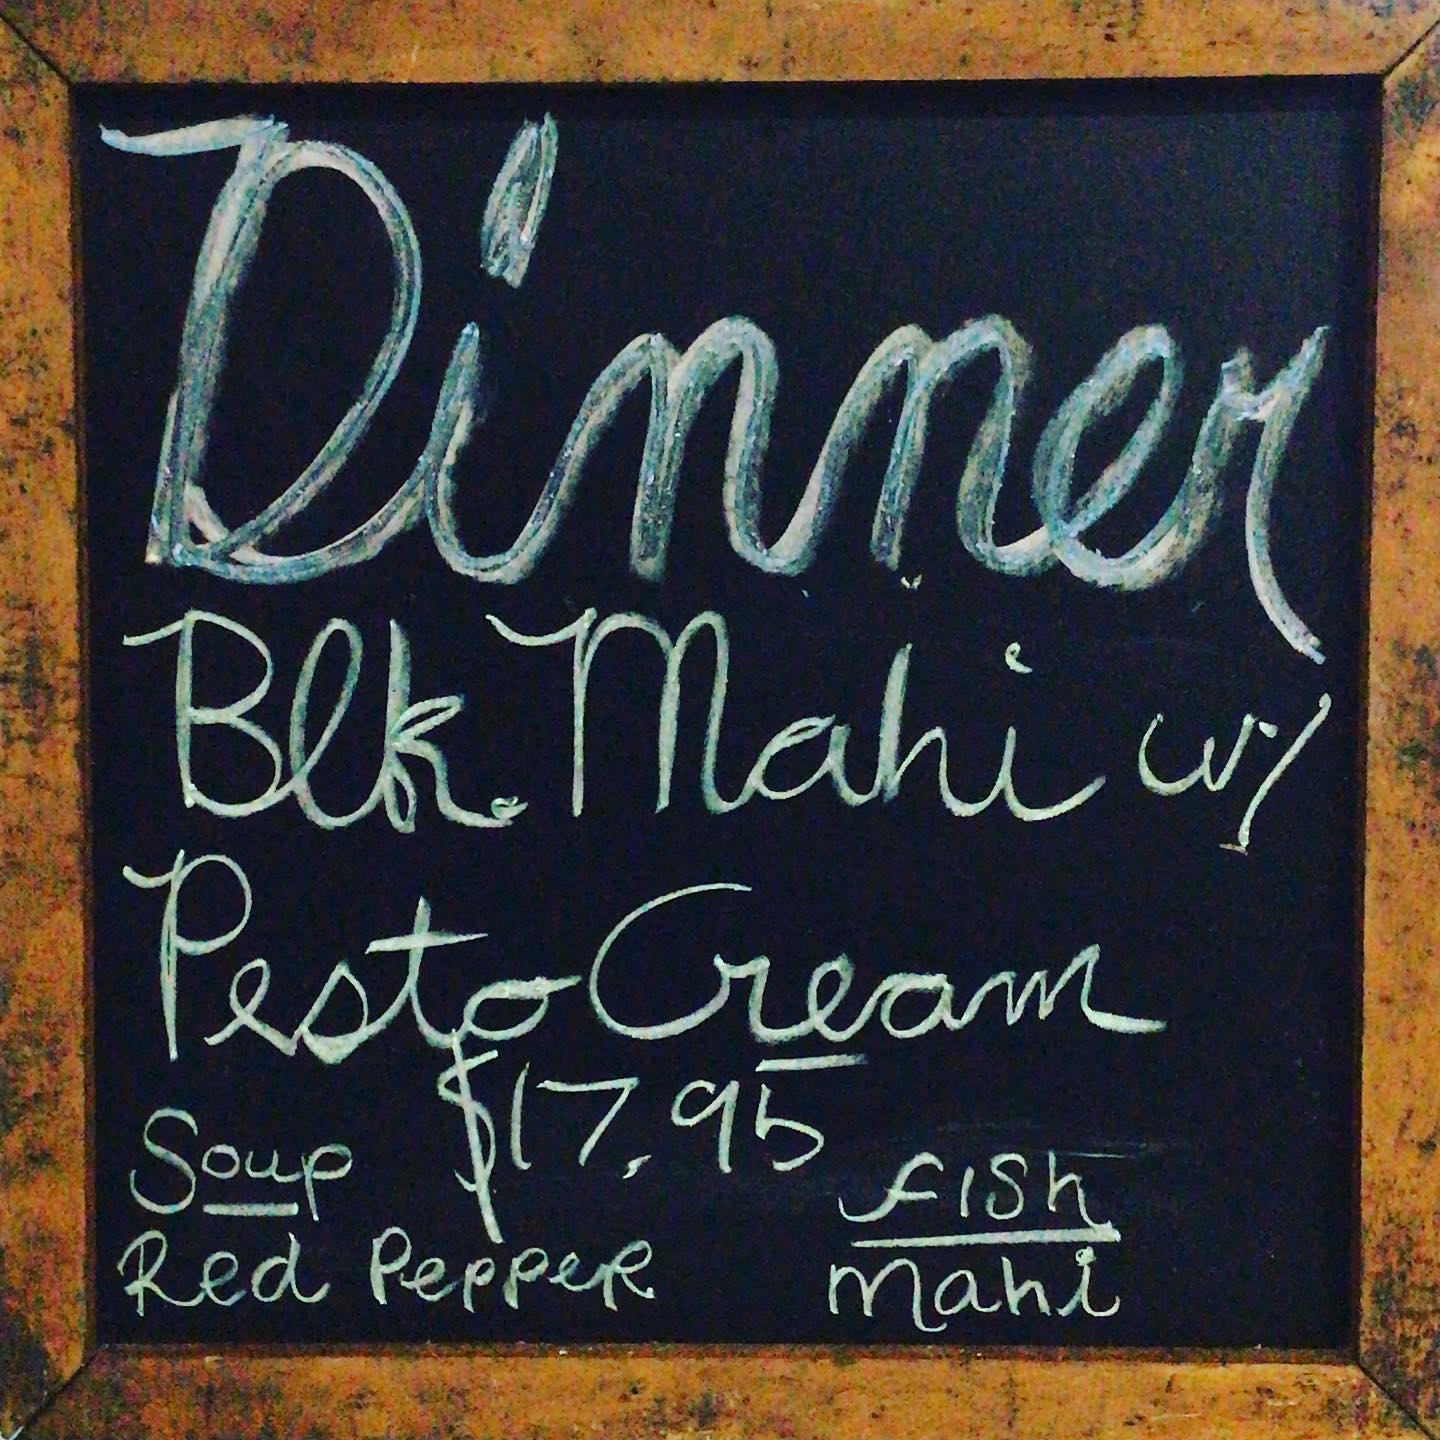 Dinner
Blk. Mahi w/
Pesto Cream
$17.95
Soup
Red Pepper
Fish
Mahi